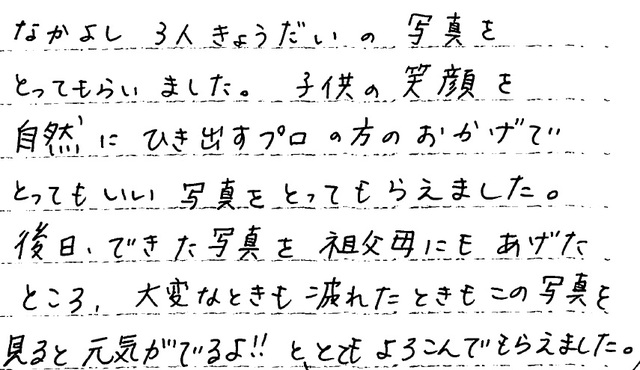 なかよし 3人きょうだいの 写真を
とってもらいました。 子供の笑顔を
自然にひき出すプロの方のおかげで
とってもいい写真をとってもらえました。
後日、できた写真を祖父母にもあげた
ところ、大変なときも疲れたときもこの写真を
見ると元気がでるよ!! ととてもよろこんでもらえました。